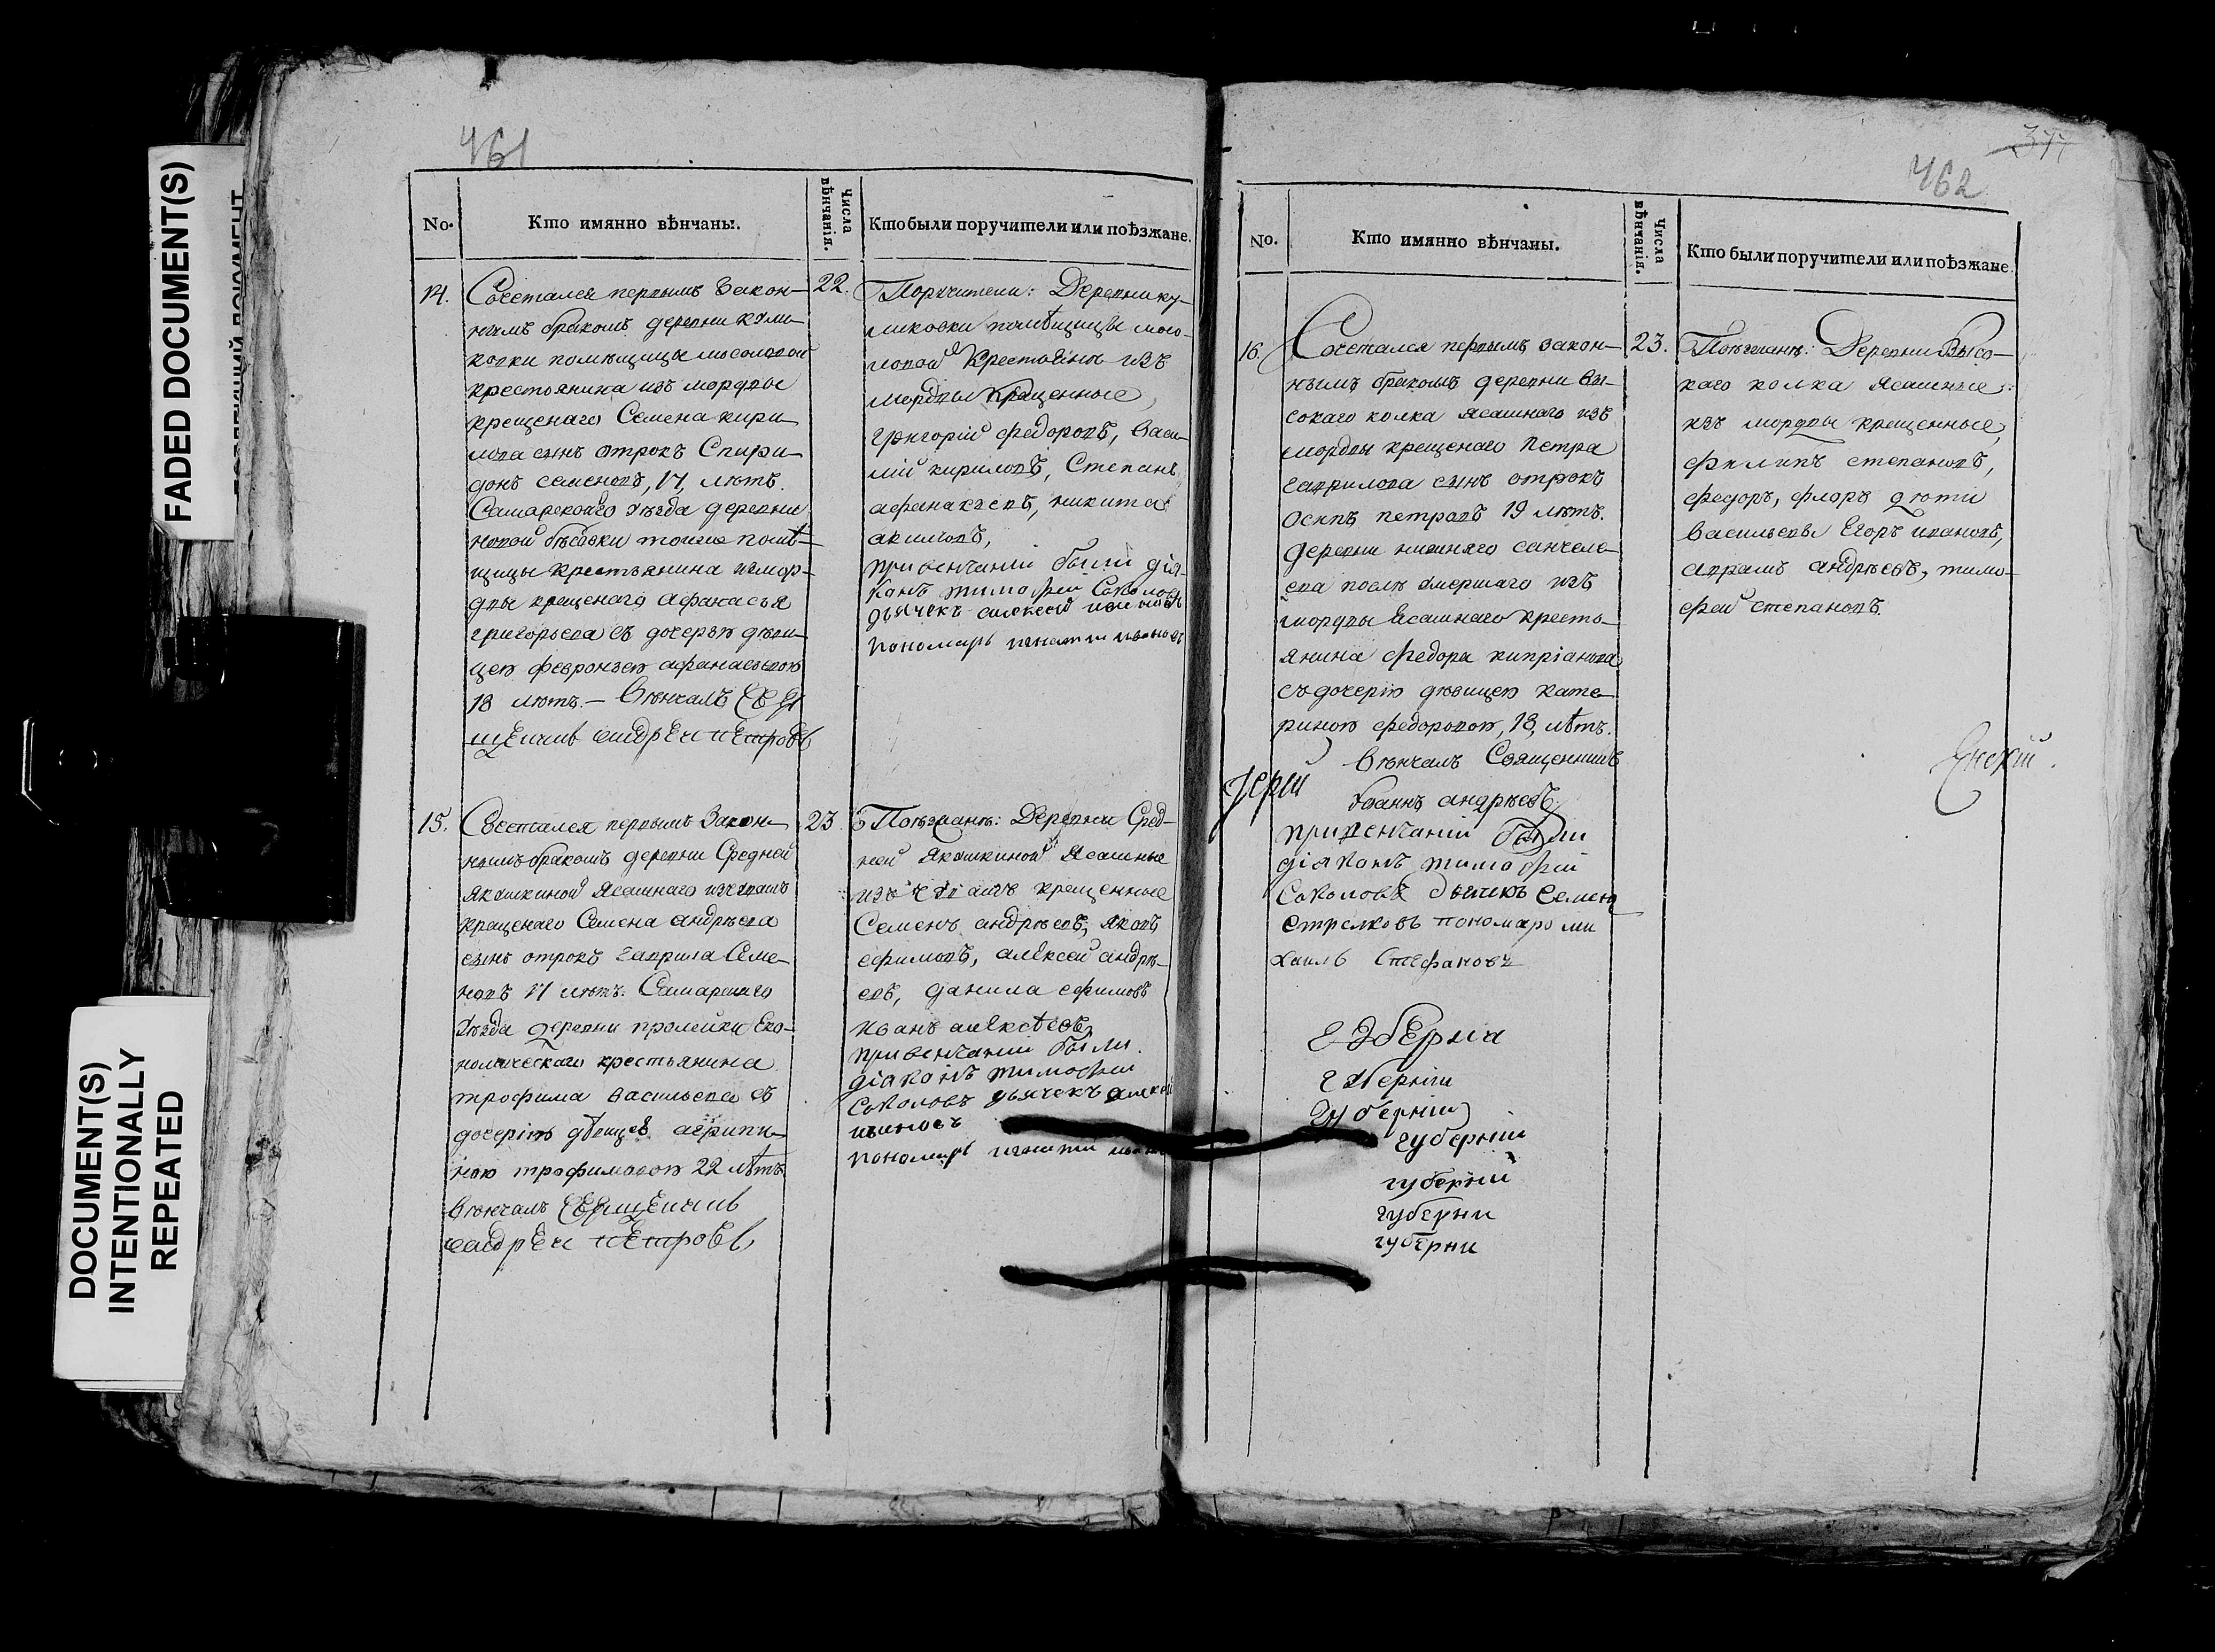 461
No. Кто имянно вѣнчаны. Числа вѣнчанія. Кто были поручители или поѣзжане.
14.
Сочетался первымъ закон-
нымъ бракомъ деревни Кули-
ковки помѣщицы Мосоловой
крестьянина изъ мордвы
крещенаго Семена Кири-
лова сынъ отрокъ Спири-
донъ Семеновъ, 17, лѣтъ.
Самарскаго уѣзда деревни
новой бѣсовки тоиже помѣ-
щицы крестьянина измор-
двы крещенаго Афанасья
григорьева съ дочерью дѣви-
цею Февроньею Афанасьевою
18 лѣтъ. — Вѣнчалъ свя
щенник андреи петровъ
22.
Поручители: Деревни ку-
ликовки помѣщицы мосо-
ловой крестьяна изъ
мордвы крещенные,
григорій федоровъ, васи-
лій кириловъ, Степанъ
афанасьевъ, никита
акимовъ,
при венчаніи были дія-
конъ тимофей Соколовъ
дьячекъ алексей ивановъ
пономарь игнати ивановъ
15.
Сочетался первымъ закон-
нымъ бракомъ деревни Средней
Якушкиной ясашнаго изчувашъ
крещенаго Семена андрѣева
сынъ отрокъ гаврила Семе-
новъ 17 лѣтъ. Самарскаго
уѣзда деревни пролейки Еко-
номическаго крестьянина
трофима васильева съ
дочерію дѣвицею агрипи-
ною трофимовою 22 лѣтъ
вѣнчалъ священник
андреи петровъ
23
Поѣзжанъ: Деревни Сред-
ней Якушкиной ясашные
изъ чувашъ крещенные
Семенъ андрѣевъ, яковъ
ефимовъ, алексей андрѣ-
евъ, данила ефимовъ
иванъ алексѣевъ,
при венчании были
діаконъ тимофеи
Соколовъ дьячекъ алексей
ивановъ
пономарь игнати
377
462
No. Кто имянно вѣнчаны. Числа вѣнчанія. Кто были поручители или поѣзжане.
16.
Сочетался первымъ закон-
нымъ бракомъ деревни вы-
сокаго колка ясашнаго изъ
мордвы крещенаго петра
гаврилова сынъ отрокъ
осипъ петровъ 19 лѣтъ.
деревни нижняго санчеле-
ева послѣ умершаго изъ
мордвы ясашнаго кресть-
янина федора кипріанова
съ дочерію дѣвицею кате-
риною федоровою, 18, лѣтъ.
Вѣнчалъ Священникъ
Іереи
Иоаннъ андрѣевъ
при венчаніи были
діаконъ тимофей
Соколовъ дьячекъ Семен
Стрелковъ пономарь ми
хаилъ Стефановъ
23.
Поѣзжанъ: Деревни Высо-
каго колка ясашные
изъ мордвы крещенные,
филипъ степановъ,
федоръ, флоръ дѣти
васильевы Егоръ ивановъ,
аврамъ андрѣевъ, тимо-
фей степановъ.
губерниа
губерніи
губерніи
губерніи
губерніи
губерни
губерни
FADED DOCUMENT(S)
DOCUMENT(S)
INTENTIONALLY
REPEATED